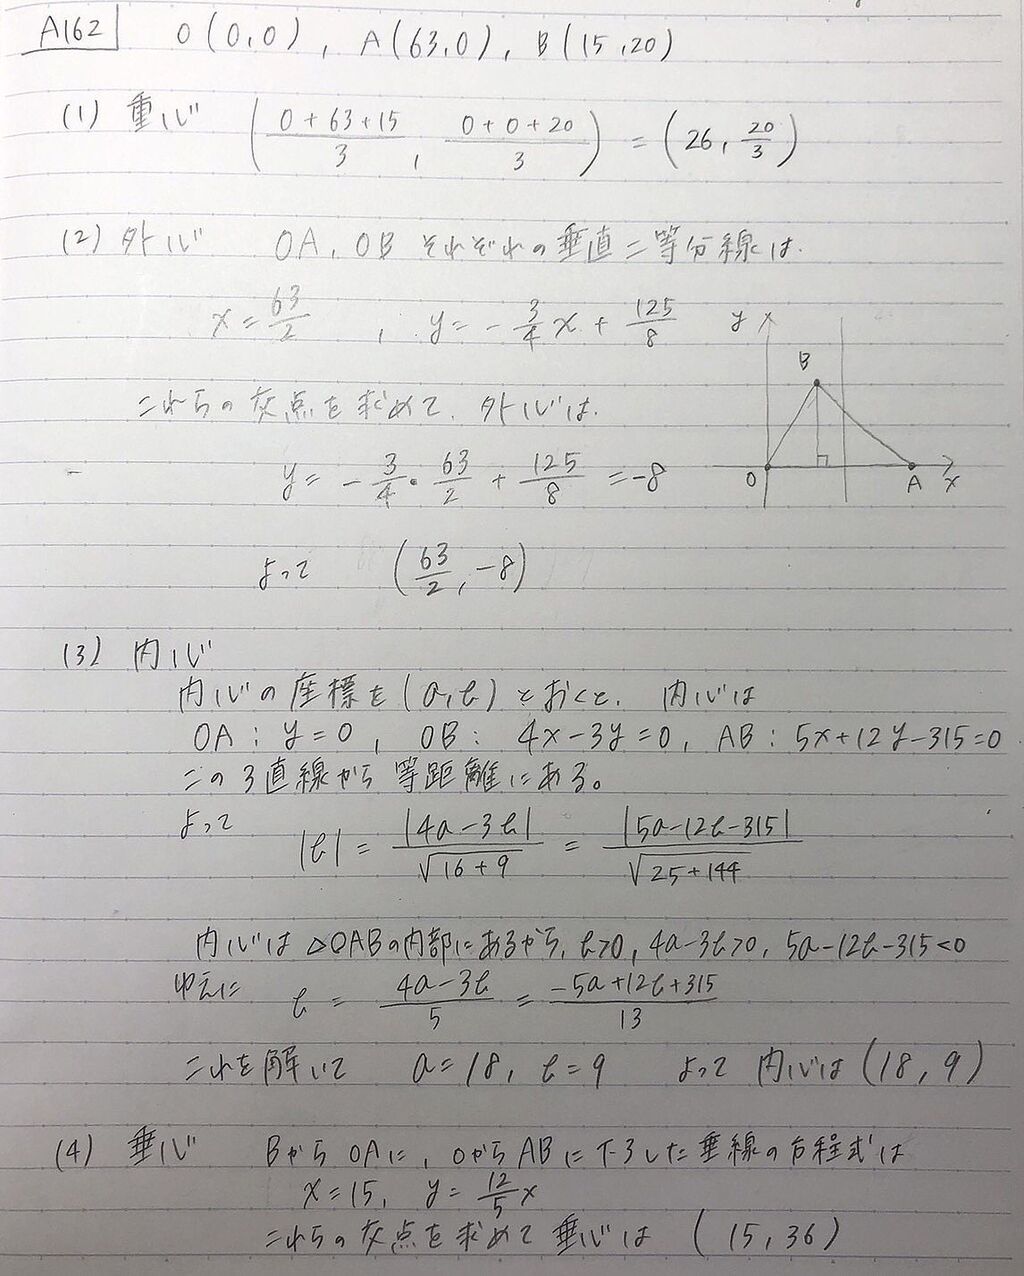 A162 O(0,0), A(63,0), B(15,20)
(1) 重心 (0+63+15/3, 0+0+20/3) = (26, 20/3)
(2) 外心 OA, OB それぞれの垂直二等分線は.
x = 63/2 , y = -3/4 x + 125/8
これらの交点を求めて. 外心は.
y = -3/4・63/2 + 125/8 = -8
よって (63/2, -8)
y x B O A
(3) 内心
内心の座標を(a,b)とおくと. 内心は
OA : y=0, OB : 4x-3y=0, AB : 5x+12y-315=0
この3直線から等距離にある。
よって |b| = |4a-3b|/√16+9 = |5a-12b-315|/√25+144
内心は △OABの内部にあるから, b>0, 4a-3b>0, 5a-12b-315<0
ゆえに b = 4a-3b/5 = -5a+12b+315/13
これを解いて a=18, b=9 よって 内心は (18, 9)
(4) 垂心 BからOAに, OからABに下ろした垂線の方程式は
x=15, y=12/5 x
これらの交点を求めて 垂心は (15, 36)